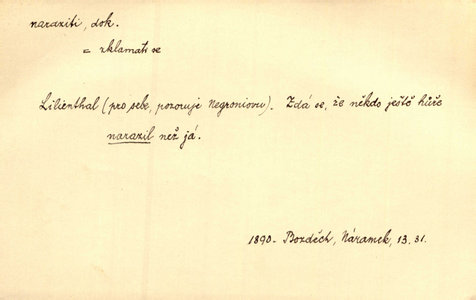 naraziti, dok.
= zklamati se
Lilienthal (pro sebe, pozoruje Negroniovu). Zdá se, že někdo ještě hůře
narazil než já.
1890 - Bozděch, Náramek, 13. 31.